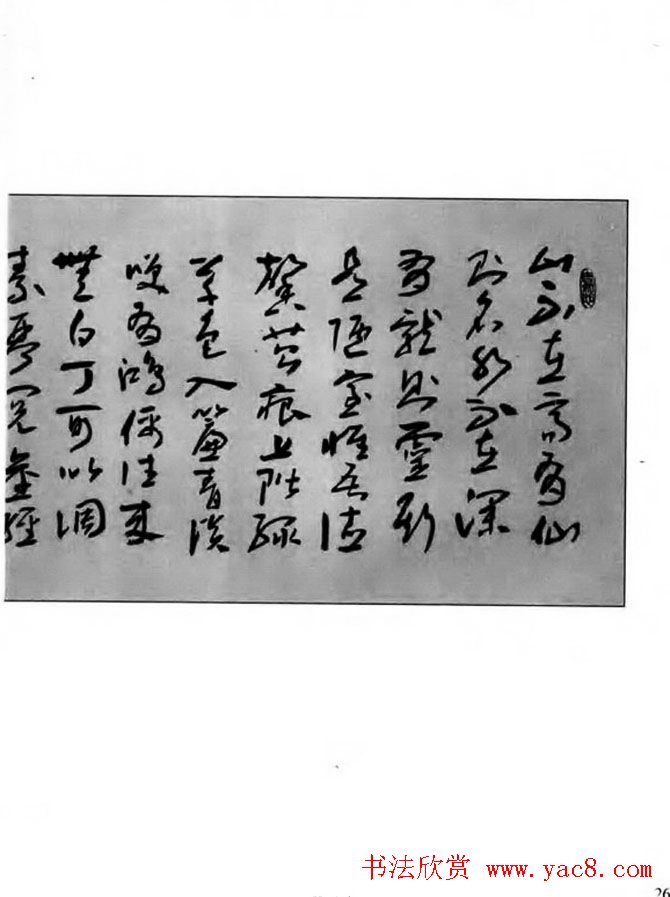 山不在高有仙
則名水不在深
有龍則靈斯
是陋室惟吾德
馨苔痕上階綠
草色入簾青談
咲有鴻儒往來
無白丁可以調
素琴閱金經
书法欣赏 www.yac8.com
26